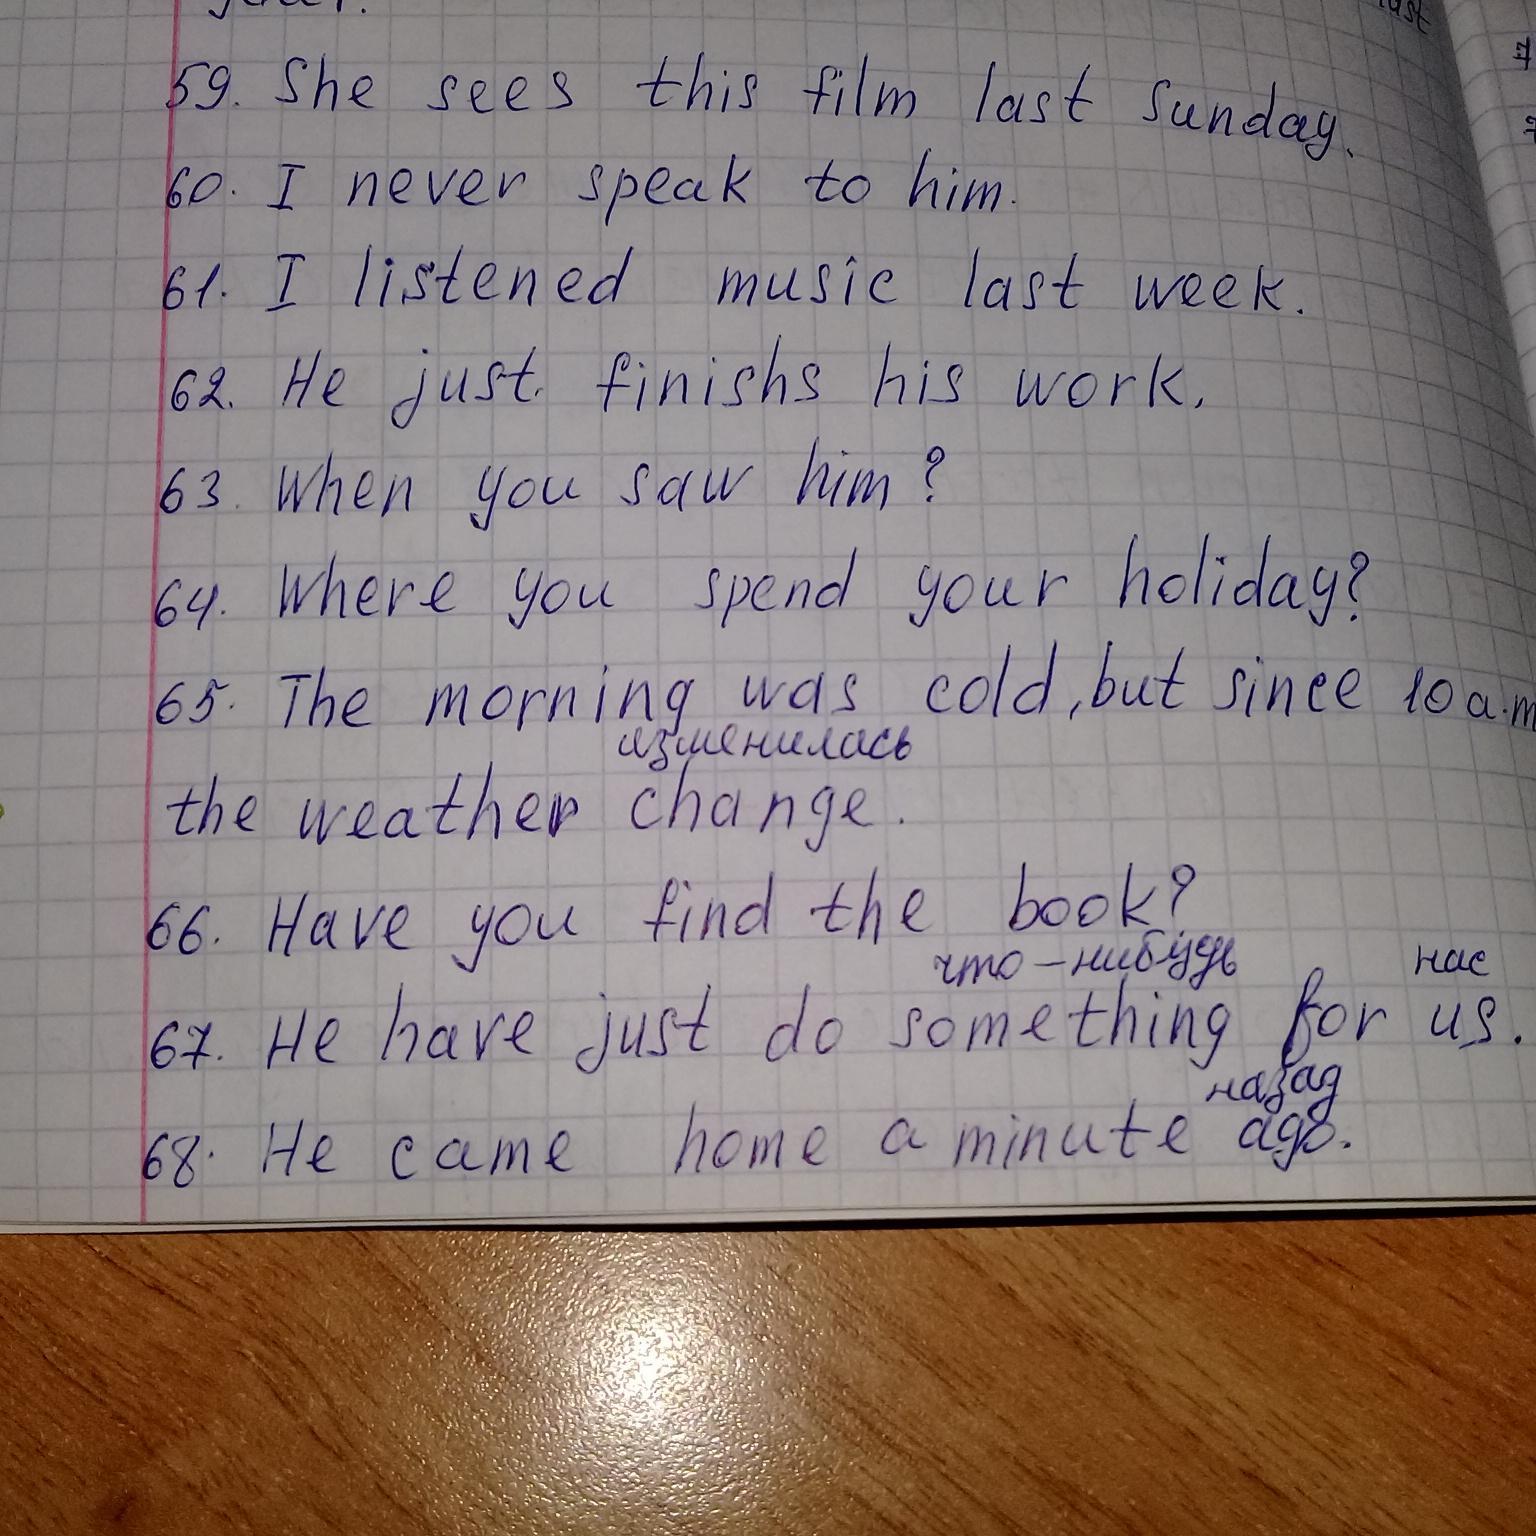 59. She sees this film last Sunday.
60. I never speak to him.
61. I listened music last week.
62. He just finishs his work.
63. When you saw him?
64. Where you spend your holiday?
65. The morning was cold, but since 10 a.m
изменилась
the weather change.
66. Have you find the book?
что-нибудь нас
67. He have just do something for us.
назад
68. He came home a minute ago.